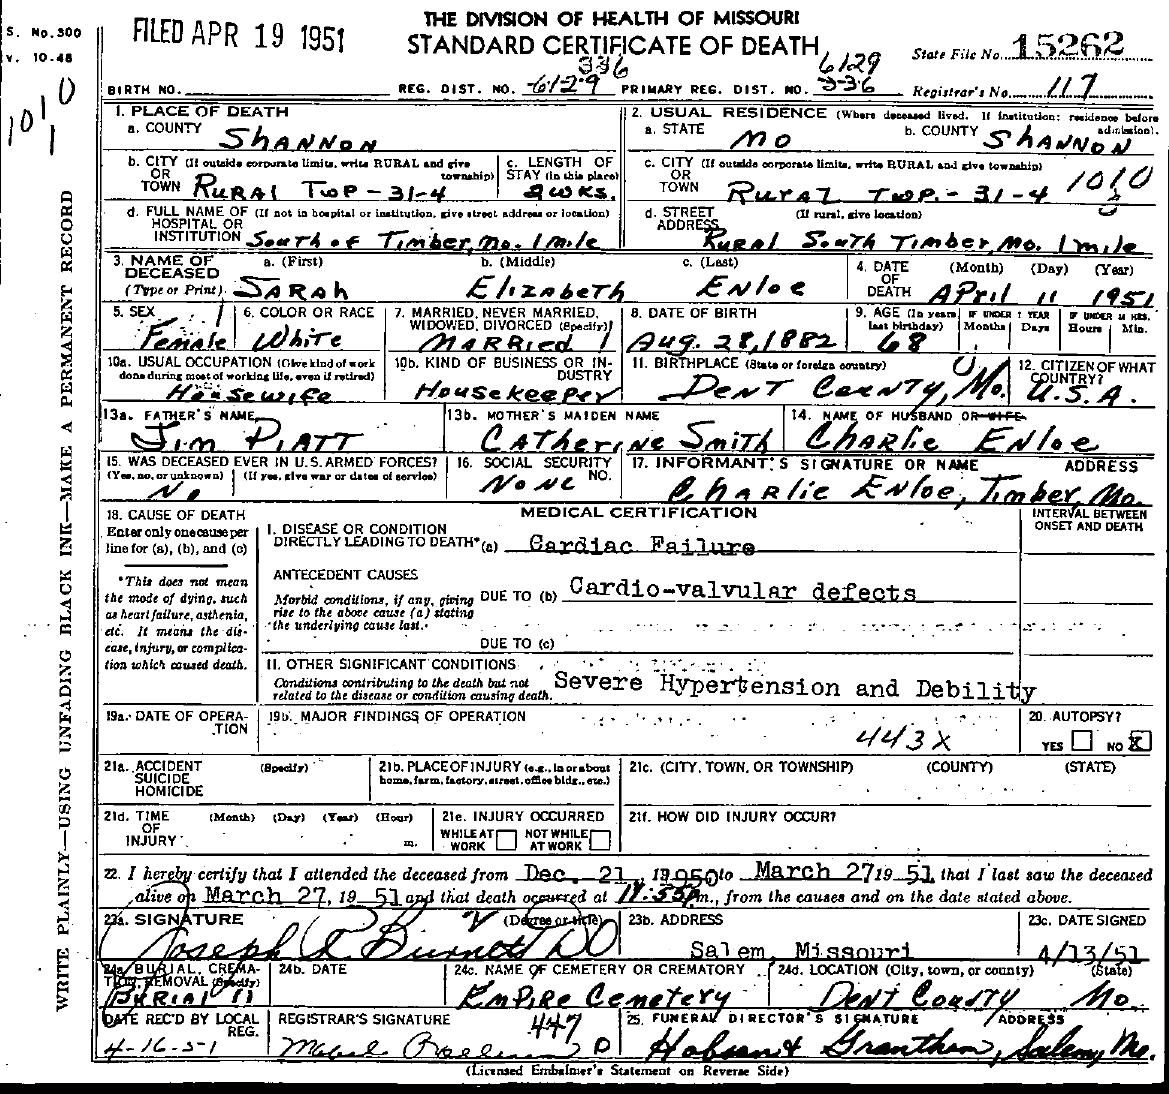 THE DIVISION OF HEALTH OF MISSOURI
STANDARD CERTIFICATE OF DEATH
FILED APR 19 1951
S. No. 300
v. 10-48
State File No. 15262
336 6129
BIRTH NO. REG. DIST. NO. 6129 PRIMARY REG. DIST. NO. 336 Registrar's No. 117
1010
1
1. PLACE OF DEATH
a. COUNTY SHANNON
2. USUAL RESIDENCE (Where deceased lived. If institution: residence before admission).
a. STATE MO b. COUNTY SHANNON
b. CITY (If outside corporate limits, write RURAL and give township) OR TOWN RURAL TWP-31-4
c. LENGTH OF STAY (in this place) 2 WKS.
c. CITY (If outside corporate limits, write RURAL and give township) OR TOWN RURAL TWP.-31-4 1010
d. FULL NAME OF (If not in hospital or institution, give street address or location) HOSPITAL OR INSTITUTION South of Timber, Mo. 1 mile
d. STREET ADDRESS (If rural, give location) Rural South Timber, Mo. 1 mile
3. NAME OF DECEASED (Type or Print) a. (First) SARAH b. (Middle) ElizabETH c. (Last) ENloE
4. DATE OF DEATH (Month) (Day) (Year) April 11 1951
5. SEX Female 1
6. COLOR OR RACE White
7. MARRIED, NEVER MARRIED, WIDOWED, DIVORCED (Specify) MARRIED 1
8. DATE OF BIRTH Aug. 28, 1882
9. AGE (In years last birthday) 68 IF UNDER 1 YEAR Months Days IF UNDER 24 HRS. Hours Min.
10a. USUAL OCCUPATION (Give kind of work done during most of working life, even if retired) Housewife
10b. KIND OF BUSINESS OR INDUSTRY Housekeeper
11. BIRTHPLACE (State or foreign country) DENT COUNTY, Mo.
12. CITIZEN OF WHAT COUNTRY? U.S.A.
13a. FATHER'S NAME Jim PIATT
13b. MOTHER'S MAIDEN NAME CATHERINE Smith
14. NAME OF HUSBAND OR WIFE CHARLIE ENloE
15. WAS DECEASED EVER IN U.S. ARMED FORCES? (Yes, no, or unknown) (If yes, give war or dates of service) No
16. SOCIAL SECURITY NO. NONE
17. INFORMANT'S SIGNATURE OR NAME ADDRESS CHARLIE ENloe, Timber, Mo.
18. CAUSE OF DEATH
Enter only one cause per line for (a), (b), and (c)
*This does not mean the mode of dying, such as heart failure, asthenia, etc. It means the disease, injury, or complication which caused death.
MEDICAL CERTIFICATION
INTERVAL BETWEEN ONSET AND DEATH
I. DISEASE OR CONDITION DIRECTLY LEADING TO DEATH* (a) Cardiac Failure
ANTECEDENT CAUSES
Morbid conditions, if any, giving rise to the above cause (a) stating the underlying cause last.
DUE TO (b) Cardio-valvular defects
DUE TO (c)
II. OTHER SIGNIFICANT CONDITIONS
Conditions contributing to the death but not related to the disease or condition causing death. Severe Hypertension and Debility
19a. DATE OF OPERATION
19b. MAJOR FINDINGS OF OPERATION
443X
20. AUTOPSY? YES NO X
21a. ACCIDENT SUICIDE HOMICIDE (Specify)
21b. PLACE OF INJURY (e.g., in or about home, farm, factory, street, office bldg., etc.)
21c. (CITY, TOWN, OR TOWNSHIP) (COUNTY) (STATE)
21d. TIME OF INJURY (Month) (Day) (Year) (Hour) m.
21e. INJURY OCCURRED WHILE AT WORK NOT WHILE AT WORK
21f. HOW DID INJURY OCCUR?
22. I hereby certify that I attended the deceased from Dec. 21, 1950 to March 27 1951 that I last saw the deceased
alive on March 27, 1951 and that death occurred at 11:55P m., from the causes and on the date stated above.
23a. SIGNATURE (Degree or title) Joseph L Burnett DO
23b. ADDRESS Salem, Missouri
23c. DATE SIGNED 4/13/51
24a. BURIAL, CREMATION, REMOVAL (Specify) BURIAL 11
24b. DATE
24c. NAME OF CEMETERY OR CREMATORY EMPIRE CEMETERY
24d. LOCATION (City, town, or county) (State) DENT COUNTY Mo.
DATE REC'D BY LOCAL REG. 4-16-51
REGISTRAR'S SIGNATURE 447
25. FUNERAL DIRECTOR'S SIGNATURE ADDRESS Hobson & Grantham, Salem, Mo.
(Licensed Embalmer's Statement on Reverse Side)
WRITE PLAINLY—USING UNFADING BLACK INK—MAKE A PERMANENT RECORD